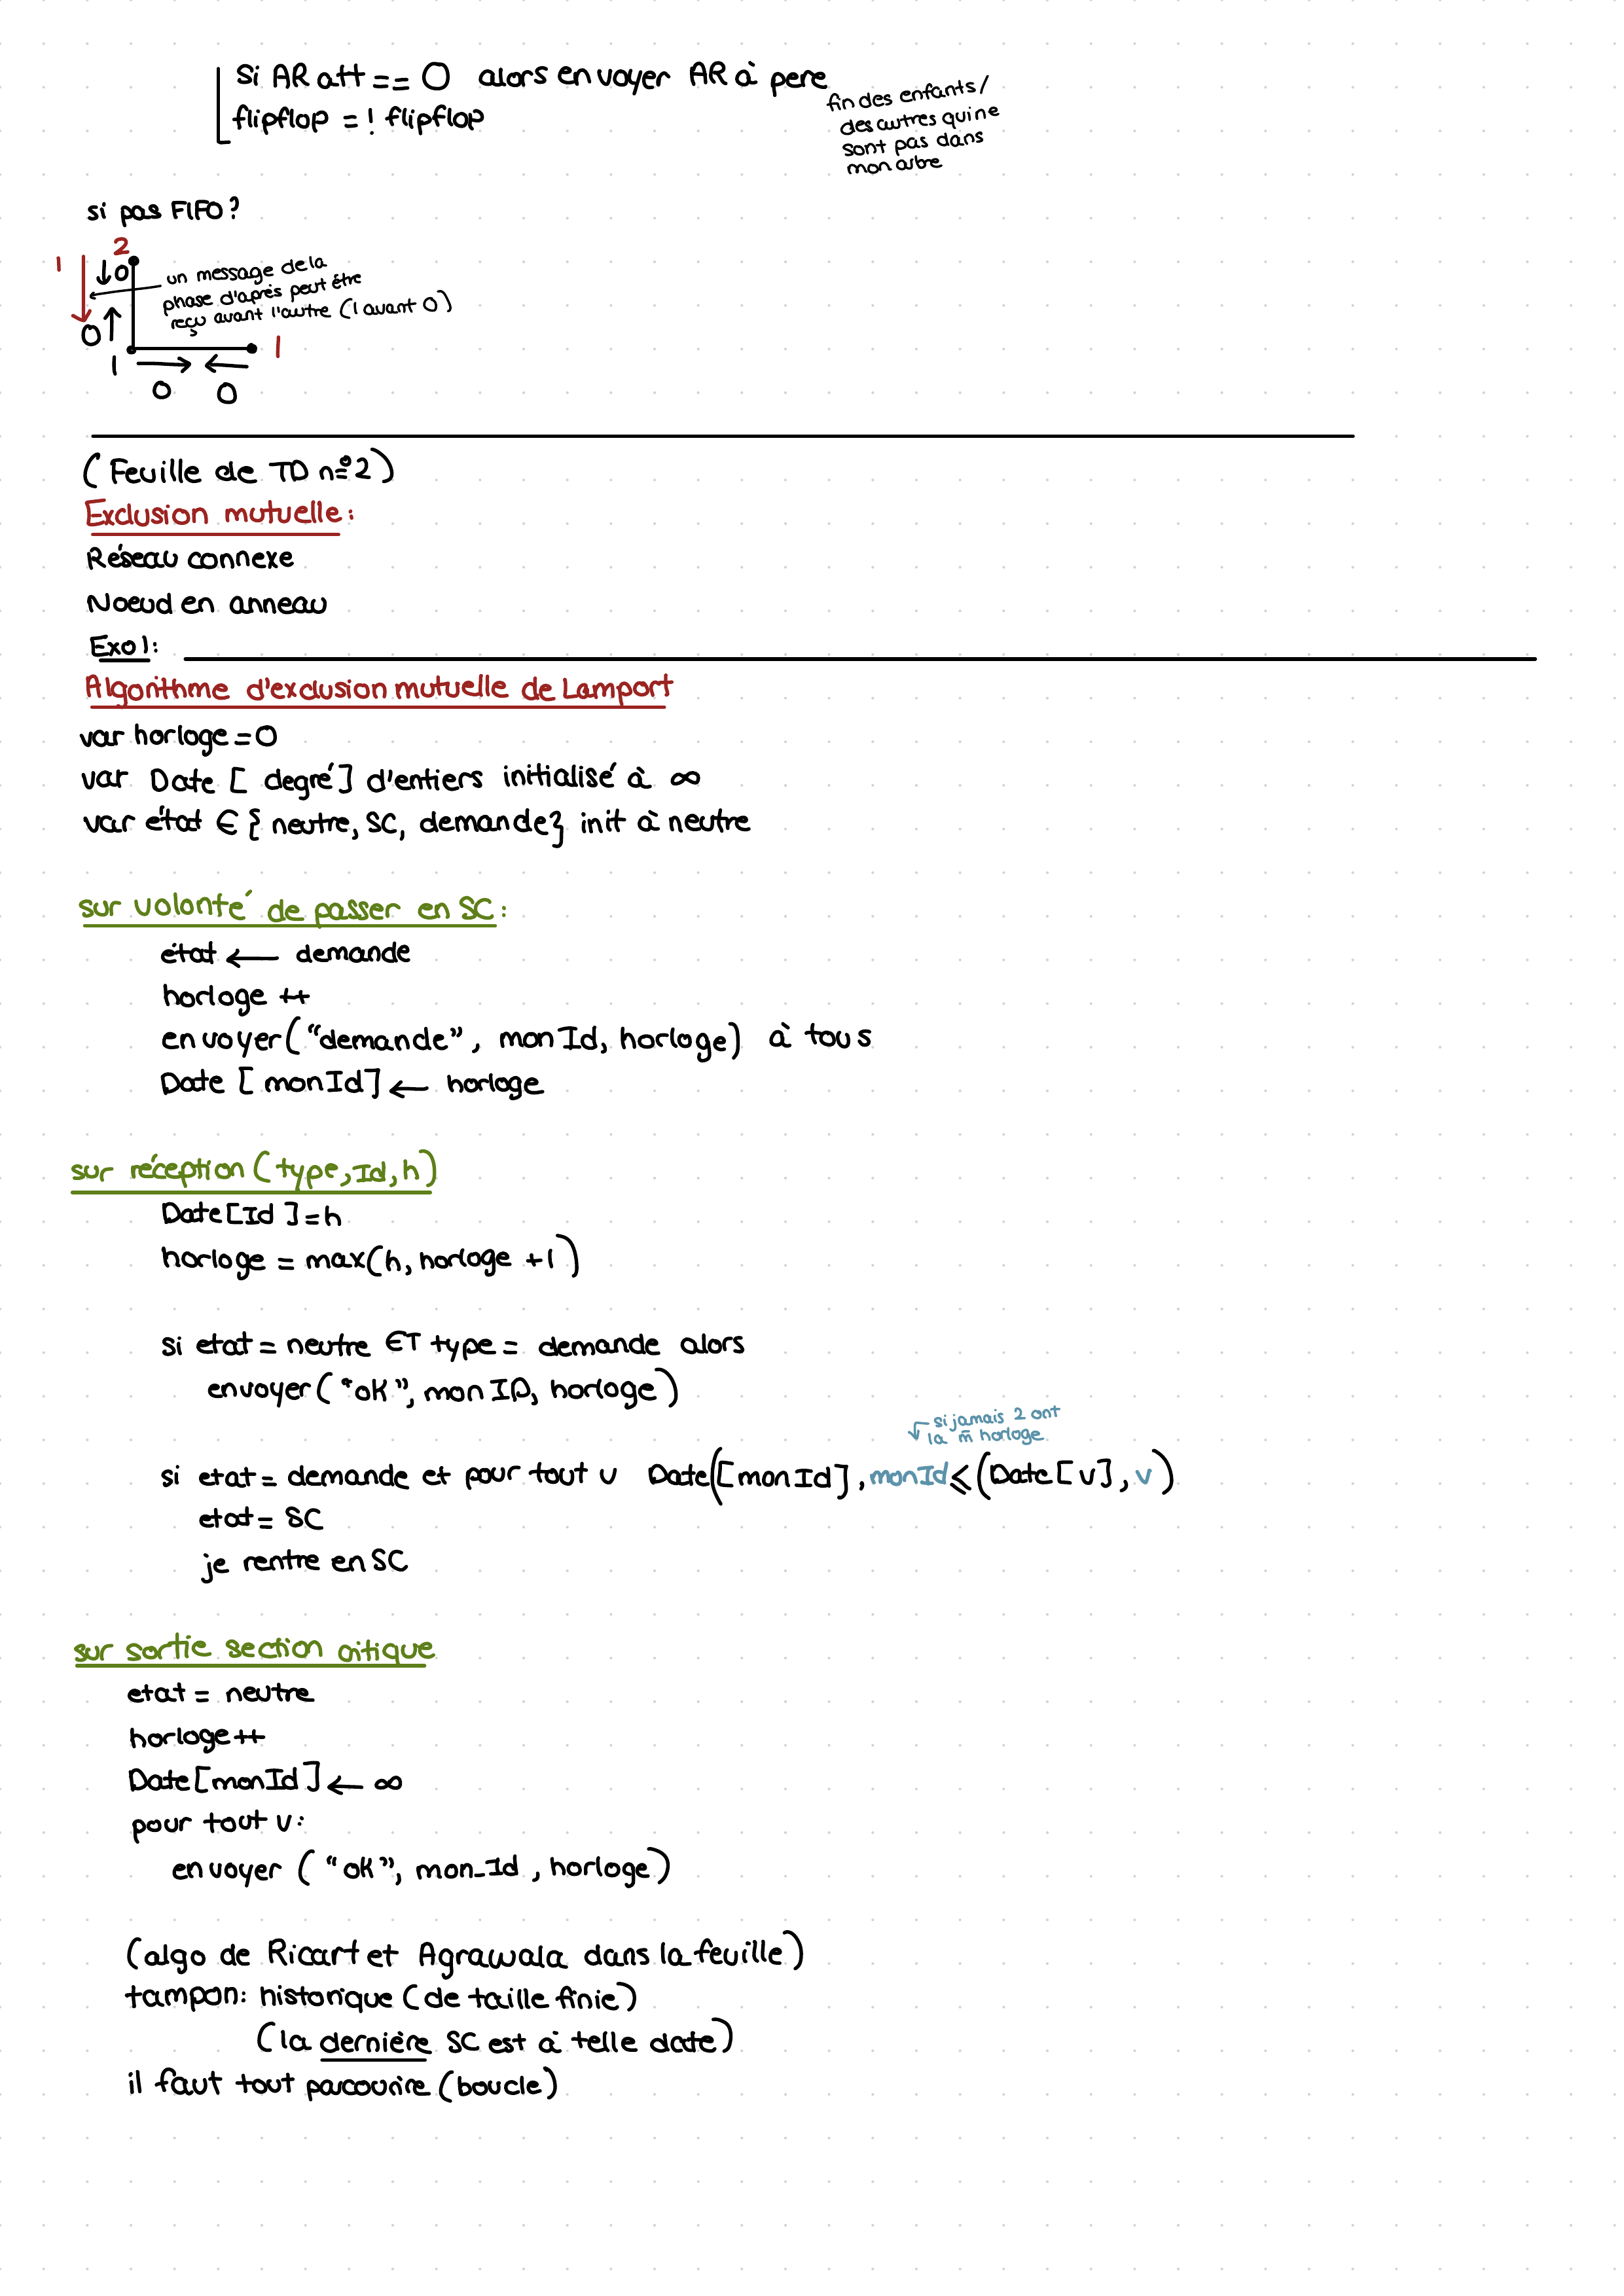 Si AR att == 0 alors envoyer AR à pere
flipflop = ! flipflop
fin des enfants /
des autres qui ne
sont pas dans
mon arbre
si pas FIFO ?
1 2
0
un message de la
phase d'après peut être
reçu avant l'autre (1 avant 0)
0
1 1
0 0
(Feuille de TD n°2)
Exclusion mutuelle :
Réseau connexe
Noeud en anneau
Exo 1 :
Algorithme d'exclusion mutuelle de Lamport
var horloge = 0
var Date [ degré ] d'entiers initialisé à ∞
var état ∈ { neutre, SC, demande} init à neutre
sur volonté de passer en SC :
état ← demande
horloge ++
envoyer ("demande", monId, horloge) à tous
Date [ monId] ← horloge
sur réception (type, Id, h)
Date [Id ] = h
horloge = max(h, horloge +1)
si etat = neutre ET type = demande alors
envoyer ("ok", mon ID, horloge)
si jamais 2 ont
la m̄ horloge
si etat = demande et pour tout v Date([monId], monId ≤ (Date [v], v)
etat = SC
je rentre en SC
sur sortie section critique
etat = neutre
horloge ++
Date [monId] ← ∞
pour tout v :
envoyer ( "ok", mon_Id , horloge)
(algo de Ricart et Agrawala dans la feuille)
tampon : historique (de taille finie)
(la dernière SC est à telle date)
il faut tout parcourire (boucle)